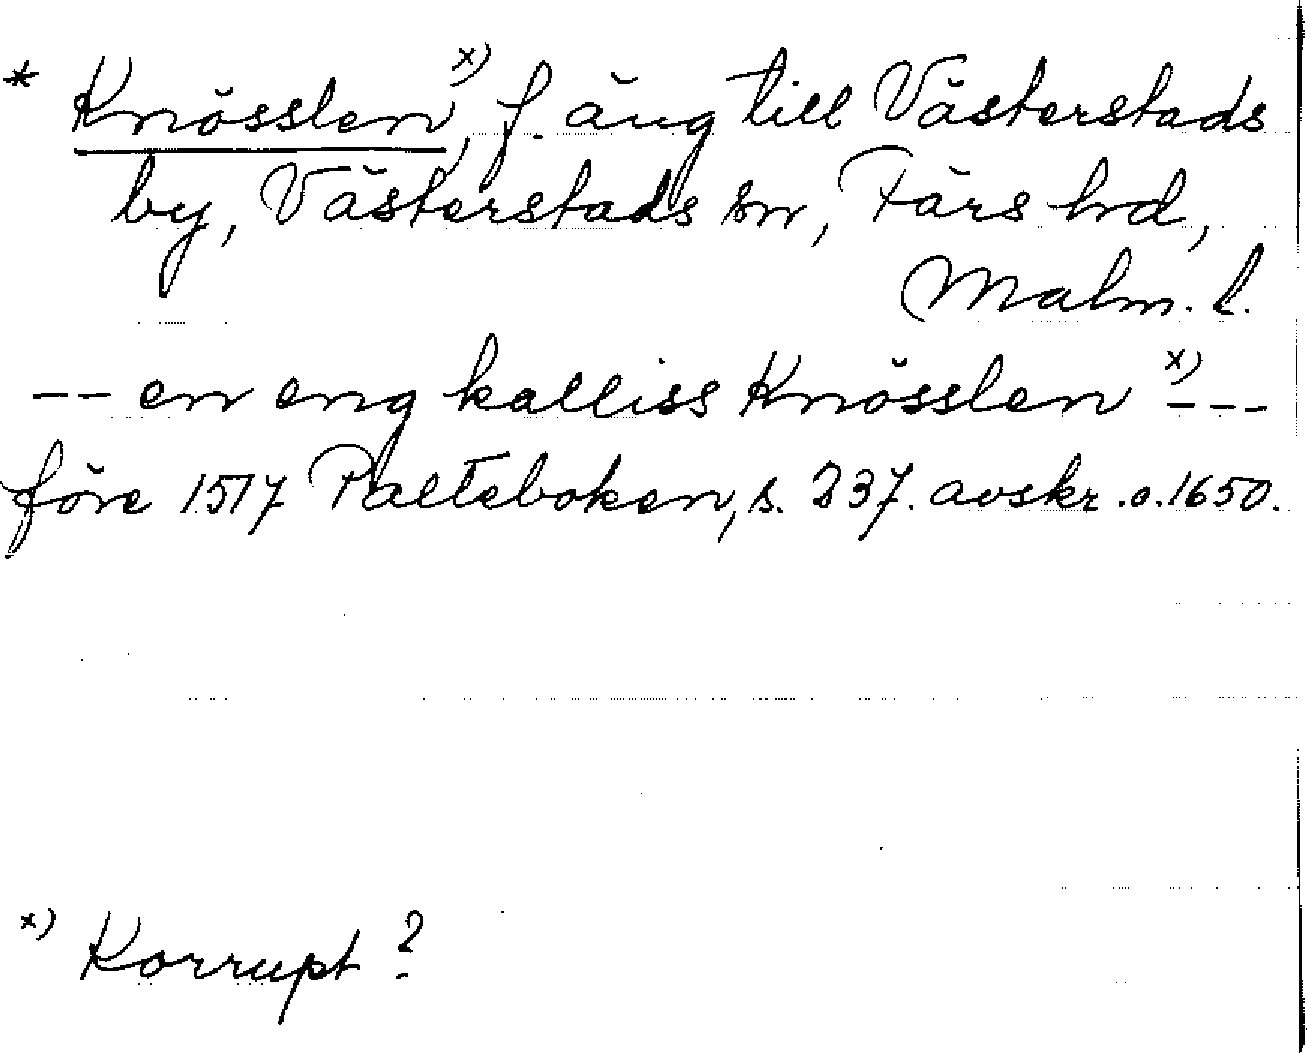 * Knösslen x), f. äng till Västerstads
by, Västerstads sn, Färs hd,
Malm. l.
-- en eng kalliss Knösslen x) ---
före 1517 Palteboken, s. 237. avskr. o. 1650.
x) Korrupt?